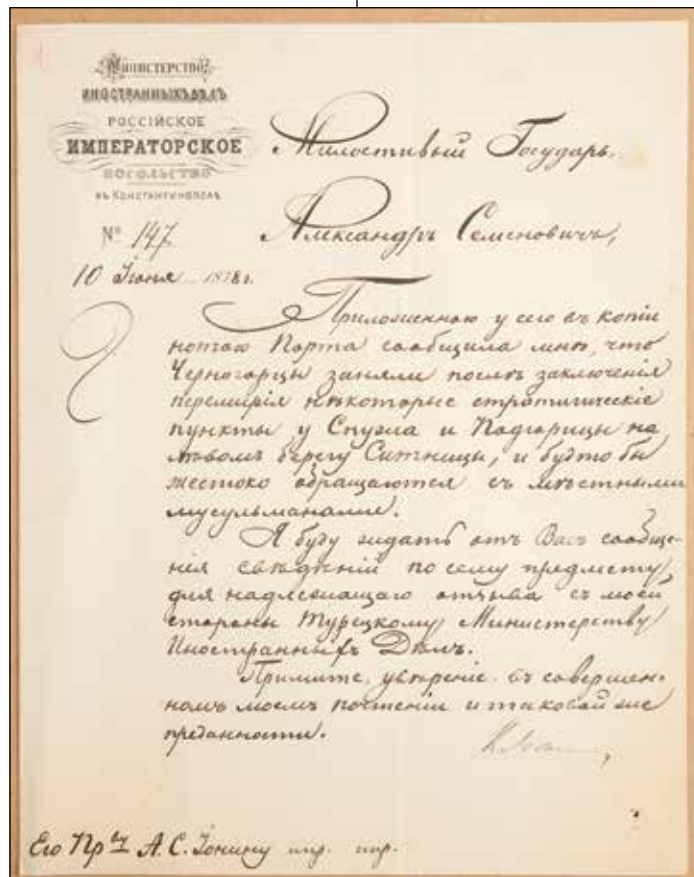 МИНИСТЕРСТВО
ИНОСТРАННЫХЪ ДѢЛЪ
РОССІЙСКОЕ
ИМПЕРАТОРСКОЕ
ПОСОЛЬСТВО
въ КОНСТАНТИНОПОЛѢ
Милостивый Государь
Александръ Семеновичъ,
№ 147
10 Іюня 1878 г.
Приложенною у сего въ копіи
нотою Порта сообщила мнѣ, что
Черногорцы заняли послѣ заключенія
перемирія нѣкоторые стратигическіе
пункты у Спужа и Подгорицы на
лѣвомъ берегу Ситницы, и будто бы
жестоко обращаются съ мѣстными
мусульманами.
Я буду ждать отъ Васъ сообще-
нія свѣдѣній по сему предмету,
для надлежащаго отзыва съ моей
стороны Турецкому Министерству
Иностранныхъ Дѣлъ.
Примите, увѣреніе въ совершен-
номъ моемъ почтеніи и таковой же
преданности.
Его Пр-ву А. С. Іонину пр. пр.